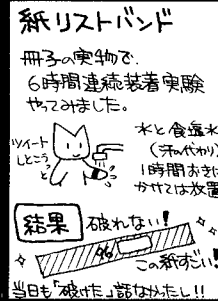 紙リストバンド
冊子の実物で、
6時間連続装着実験
やってみました。
ツイート
しとこう
水と食塩水
(汗の代わり)
1時間おきに
かけては放置
結果
破れない!
96
この紙すごい!
当日も「破けた」話なかったし!!